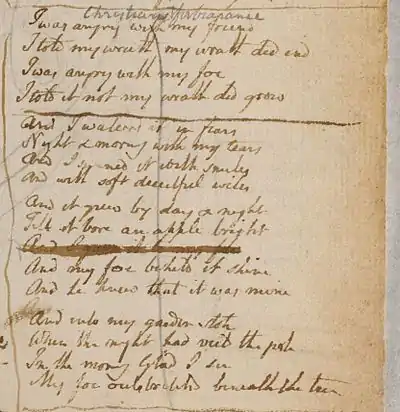 Christian Forbearance
I was angry with my friend
I told my wrath my wrath did end
I was angry with my foe
I told it not my wrath did grow
And I waterd it in fears
Night & morning with my tears
And I sunned it with smiles
And with soft deceitful wiles
And it grew by day & night
Till it bore an apple bright
And
And my foe beheld it shine
And he knew that it was mine
And into my garden stole
When the night had veild the pole
In the morning Glad I see
My foe outstretchd beneath the tree